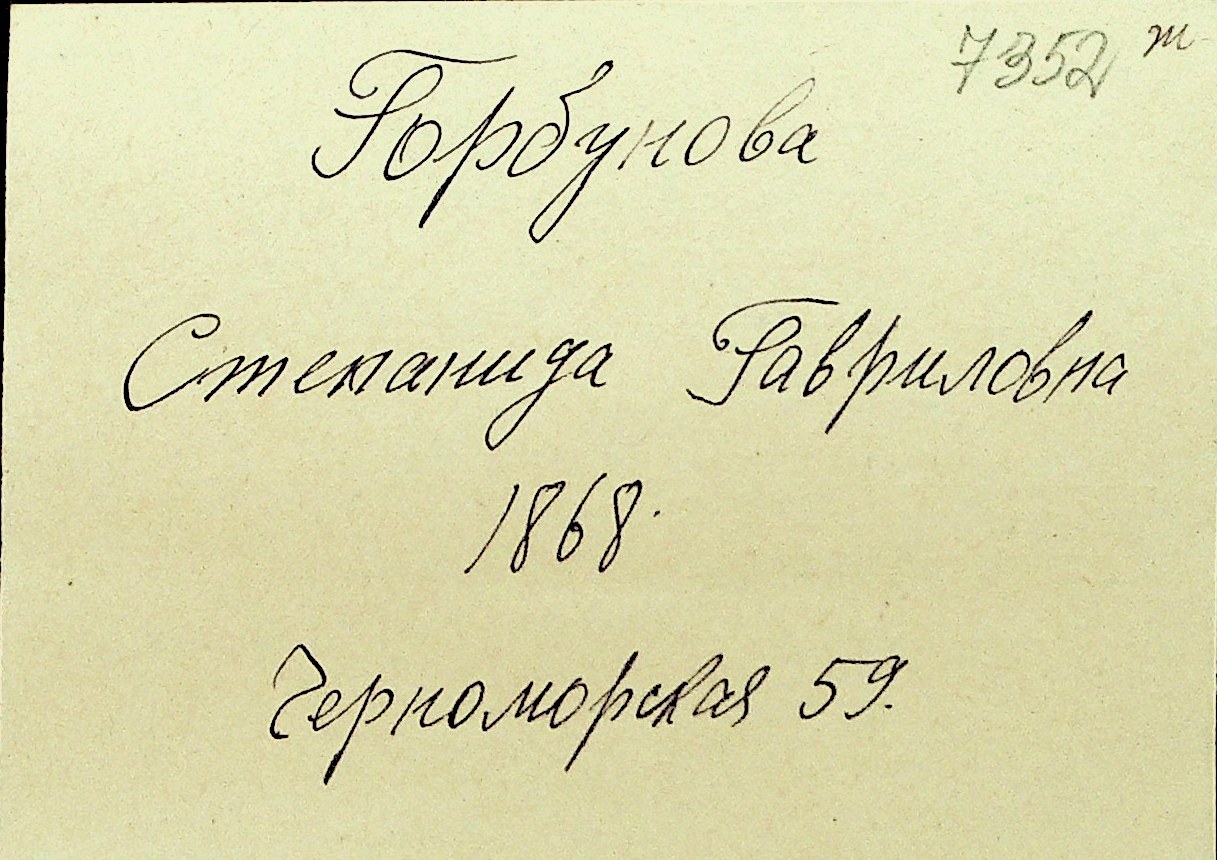 7352 т
Горбунова
Степанида Гавриловна
1868.
Черноморская 59.